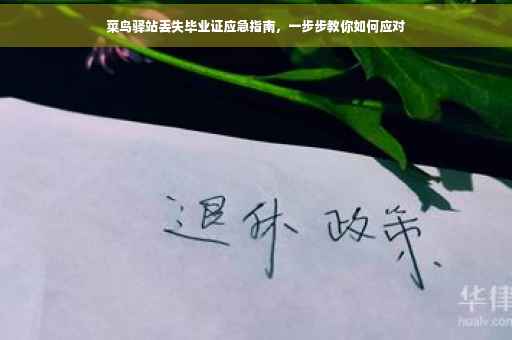 菜鸟驿站丢失毕业证应急指南，一步步教你如何应对
退休 政策
华律
hualv.com